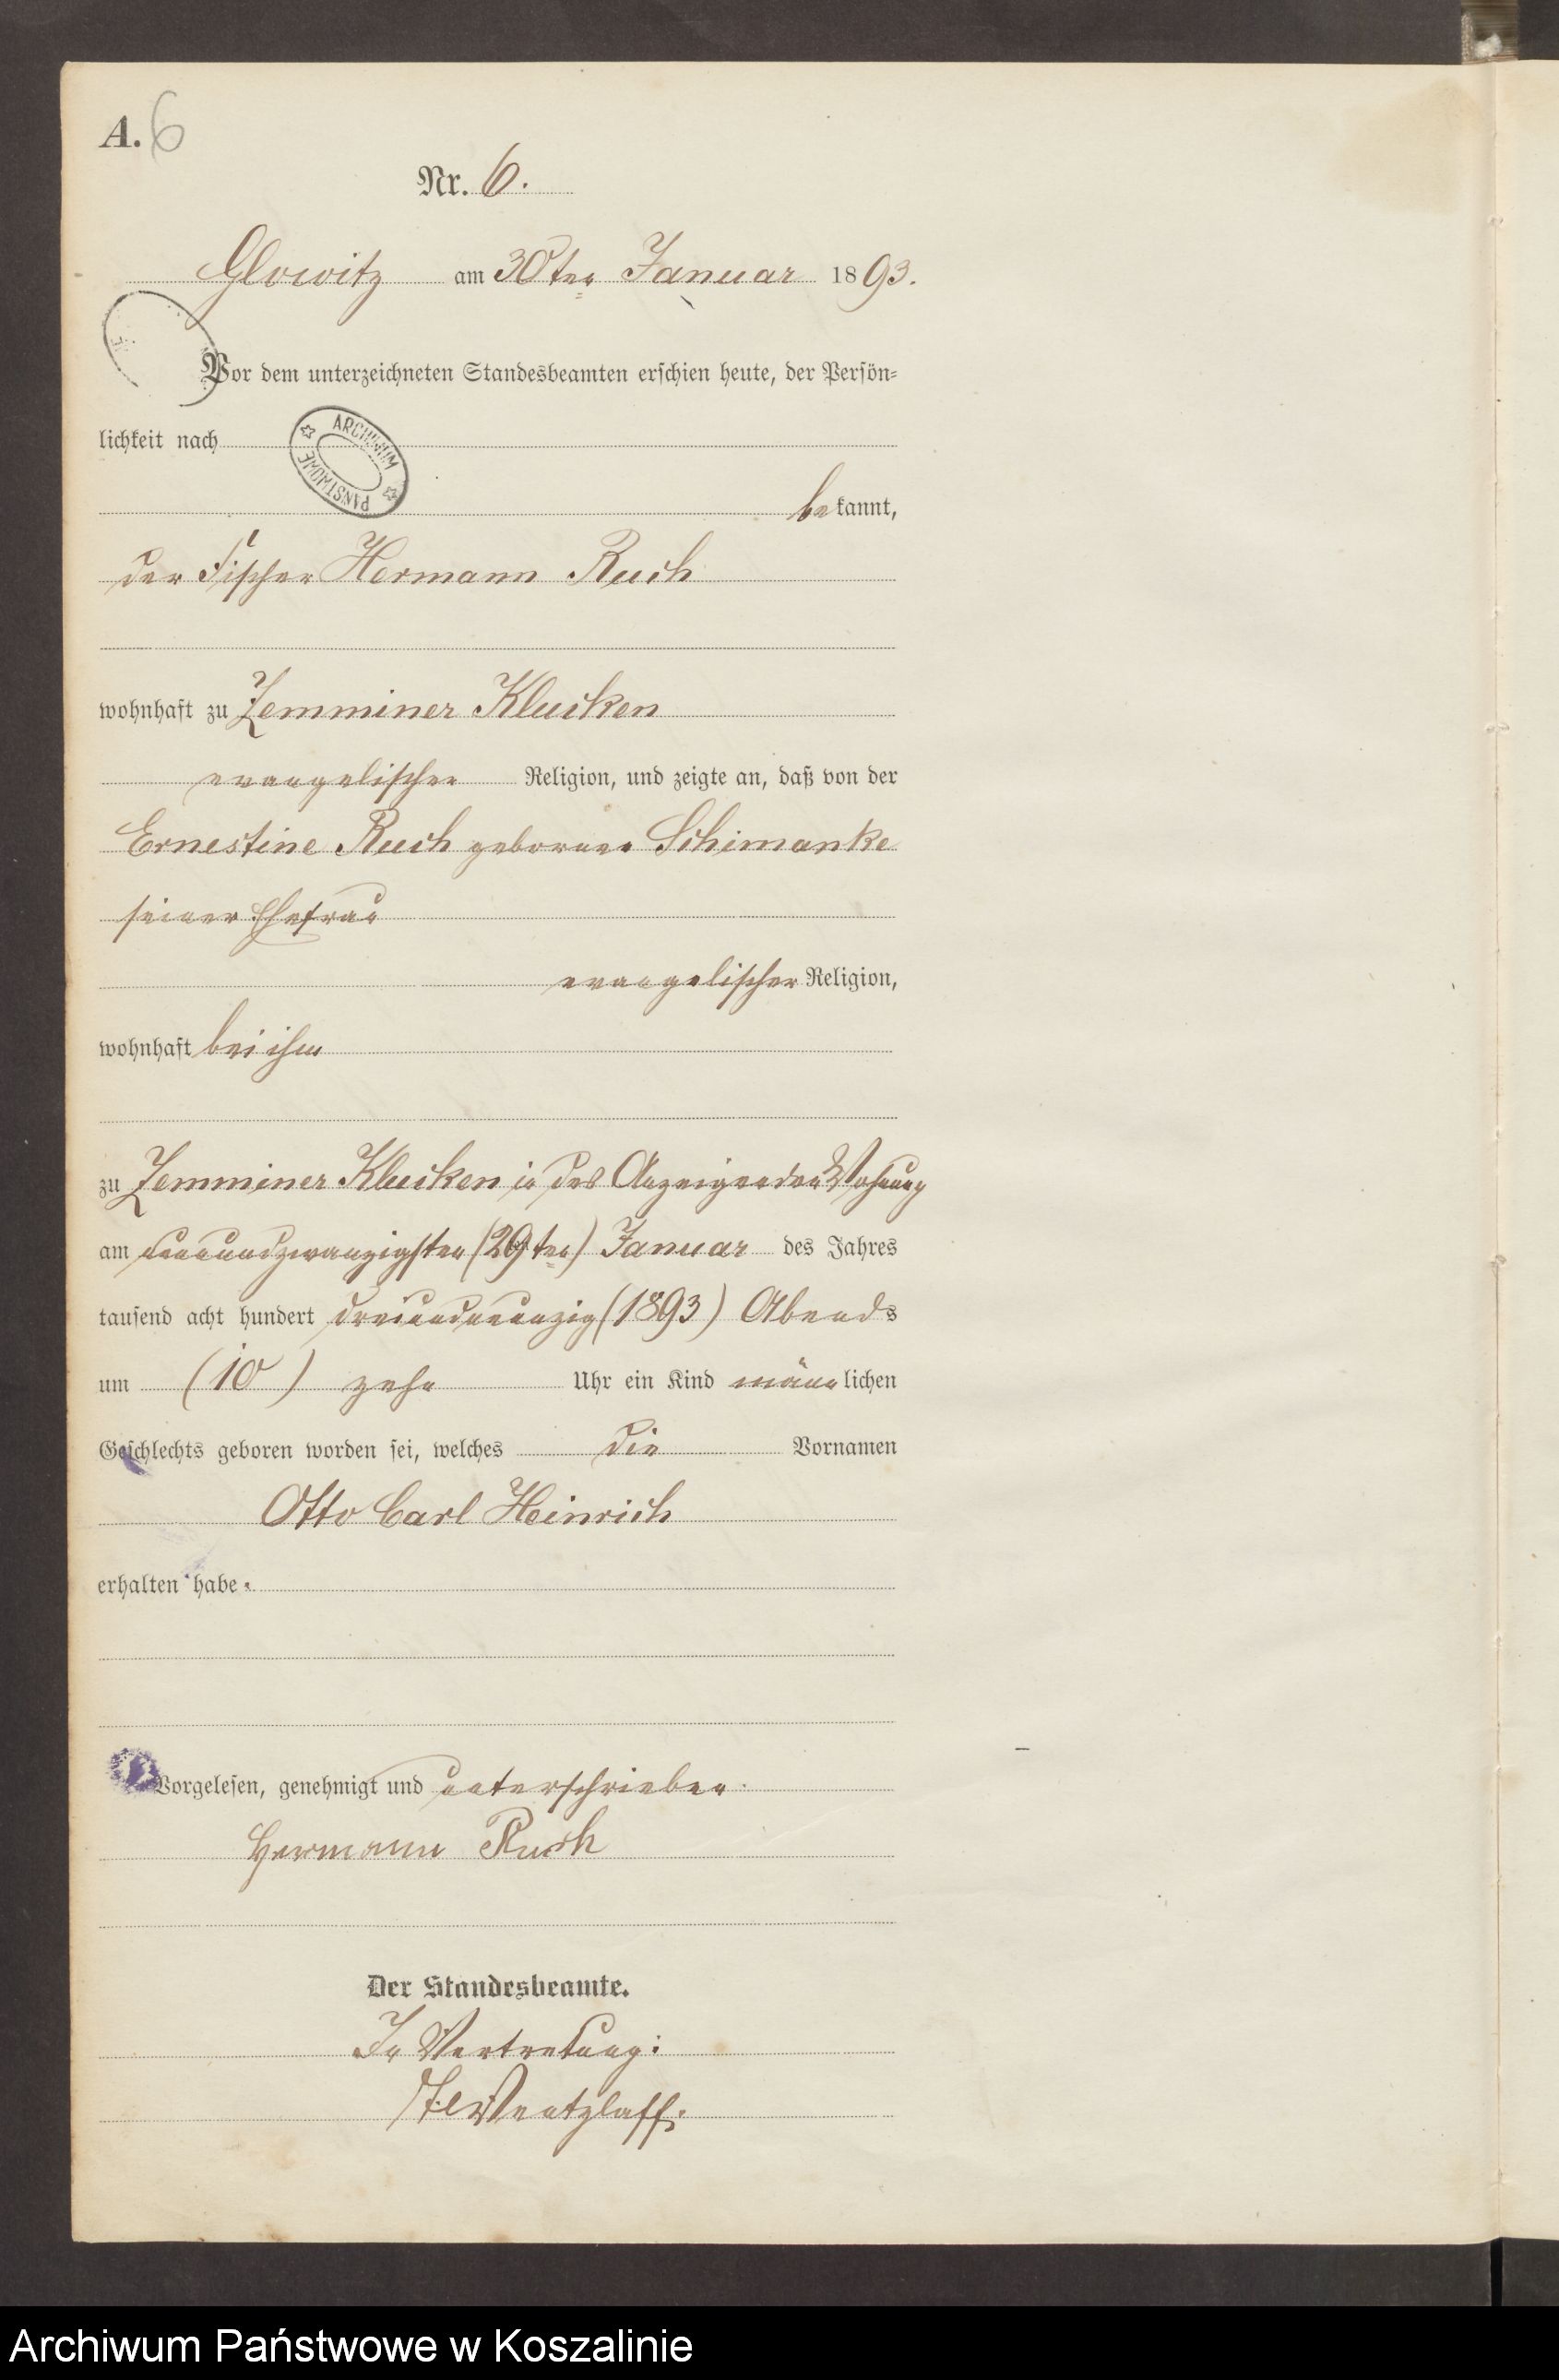 A. 6
Nr. 6.
Glowitz am 30ten Januar 1893.
Vor dem unterzeichneten Standesbeamten erschien heute, der Persön-
lichkeit nach
ARCHIWUM PAŃSTWOWE
bekannt,
der Fischer Hermann Ruch
wohnhaft zu Zemminer Klucken
evangelischer Religion, und zeigte an, daß von der
Ernestine Ruch geborner Schimanke
seiner Ehefrau
evangelischer Religion,
wohnhaft bei ihm
zu Zemminer Klucken in des Anzeigenden Wohnung
am neunundzwanzigsten (29ten) Januar des Jahres
tausend acht hundert dreiundneunzig (1893) Abends
um (10) zehn Uhr ein Kind männlichen
Geschlechts geboren worden sei, welches die Vornamen
Otto Carl Heinrich
erhalten habe.
Vorgelesen, genehmigt und unterschrieben.
Hermann Ruch
Der Standesbeamte.
In Vertretung:
Wentzlaff.
Archiwum Państwowe w Koszalinie